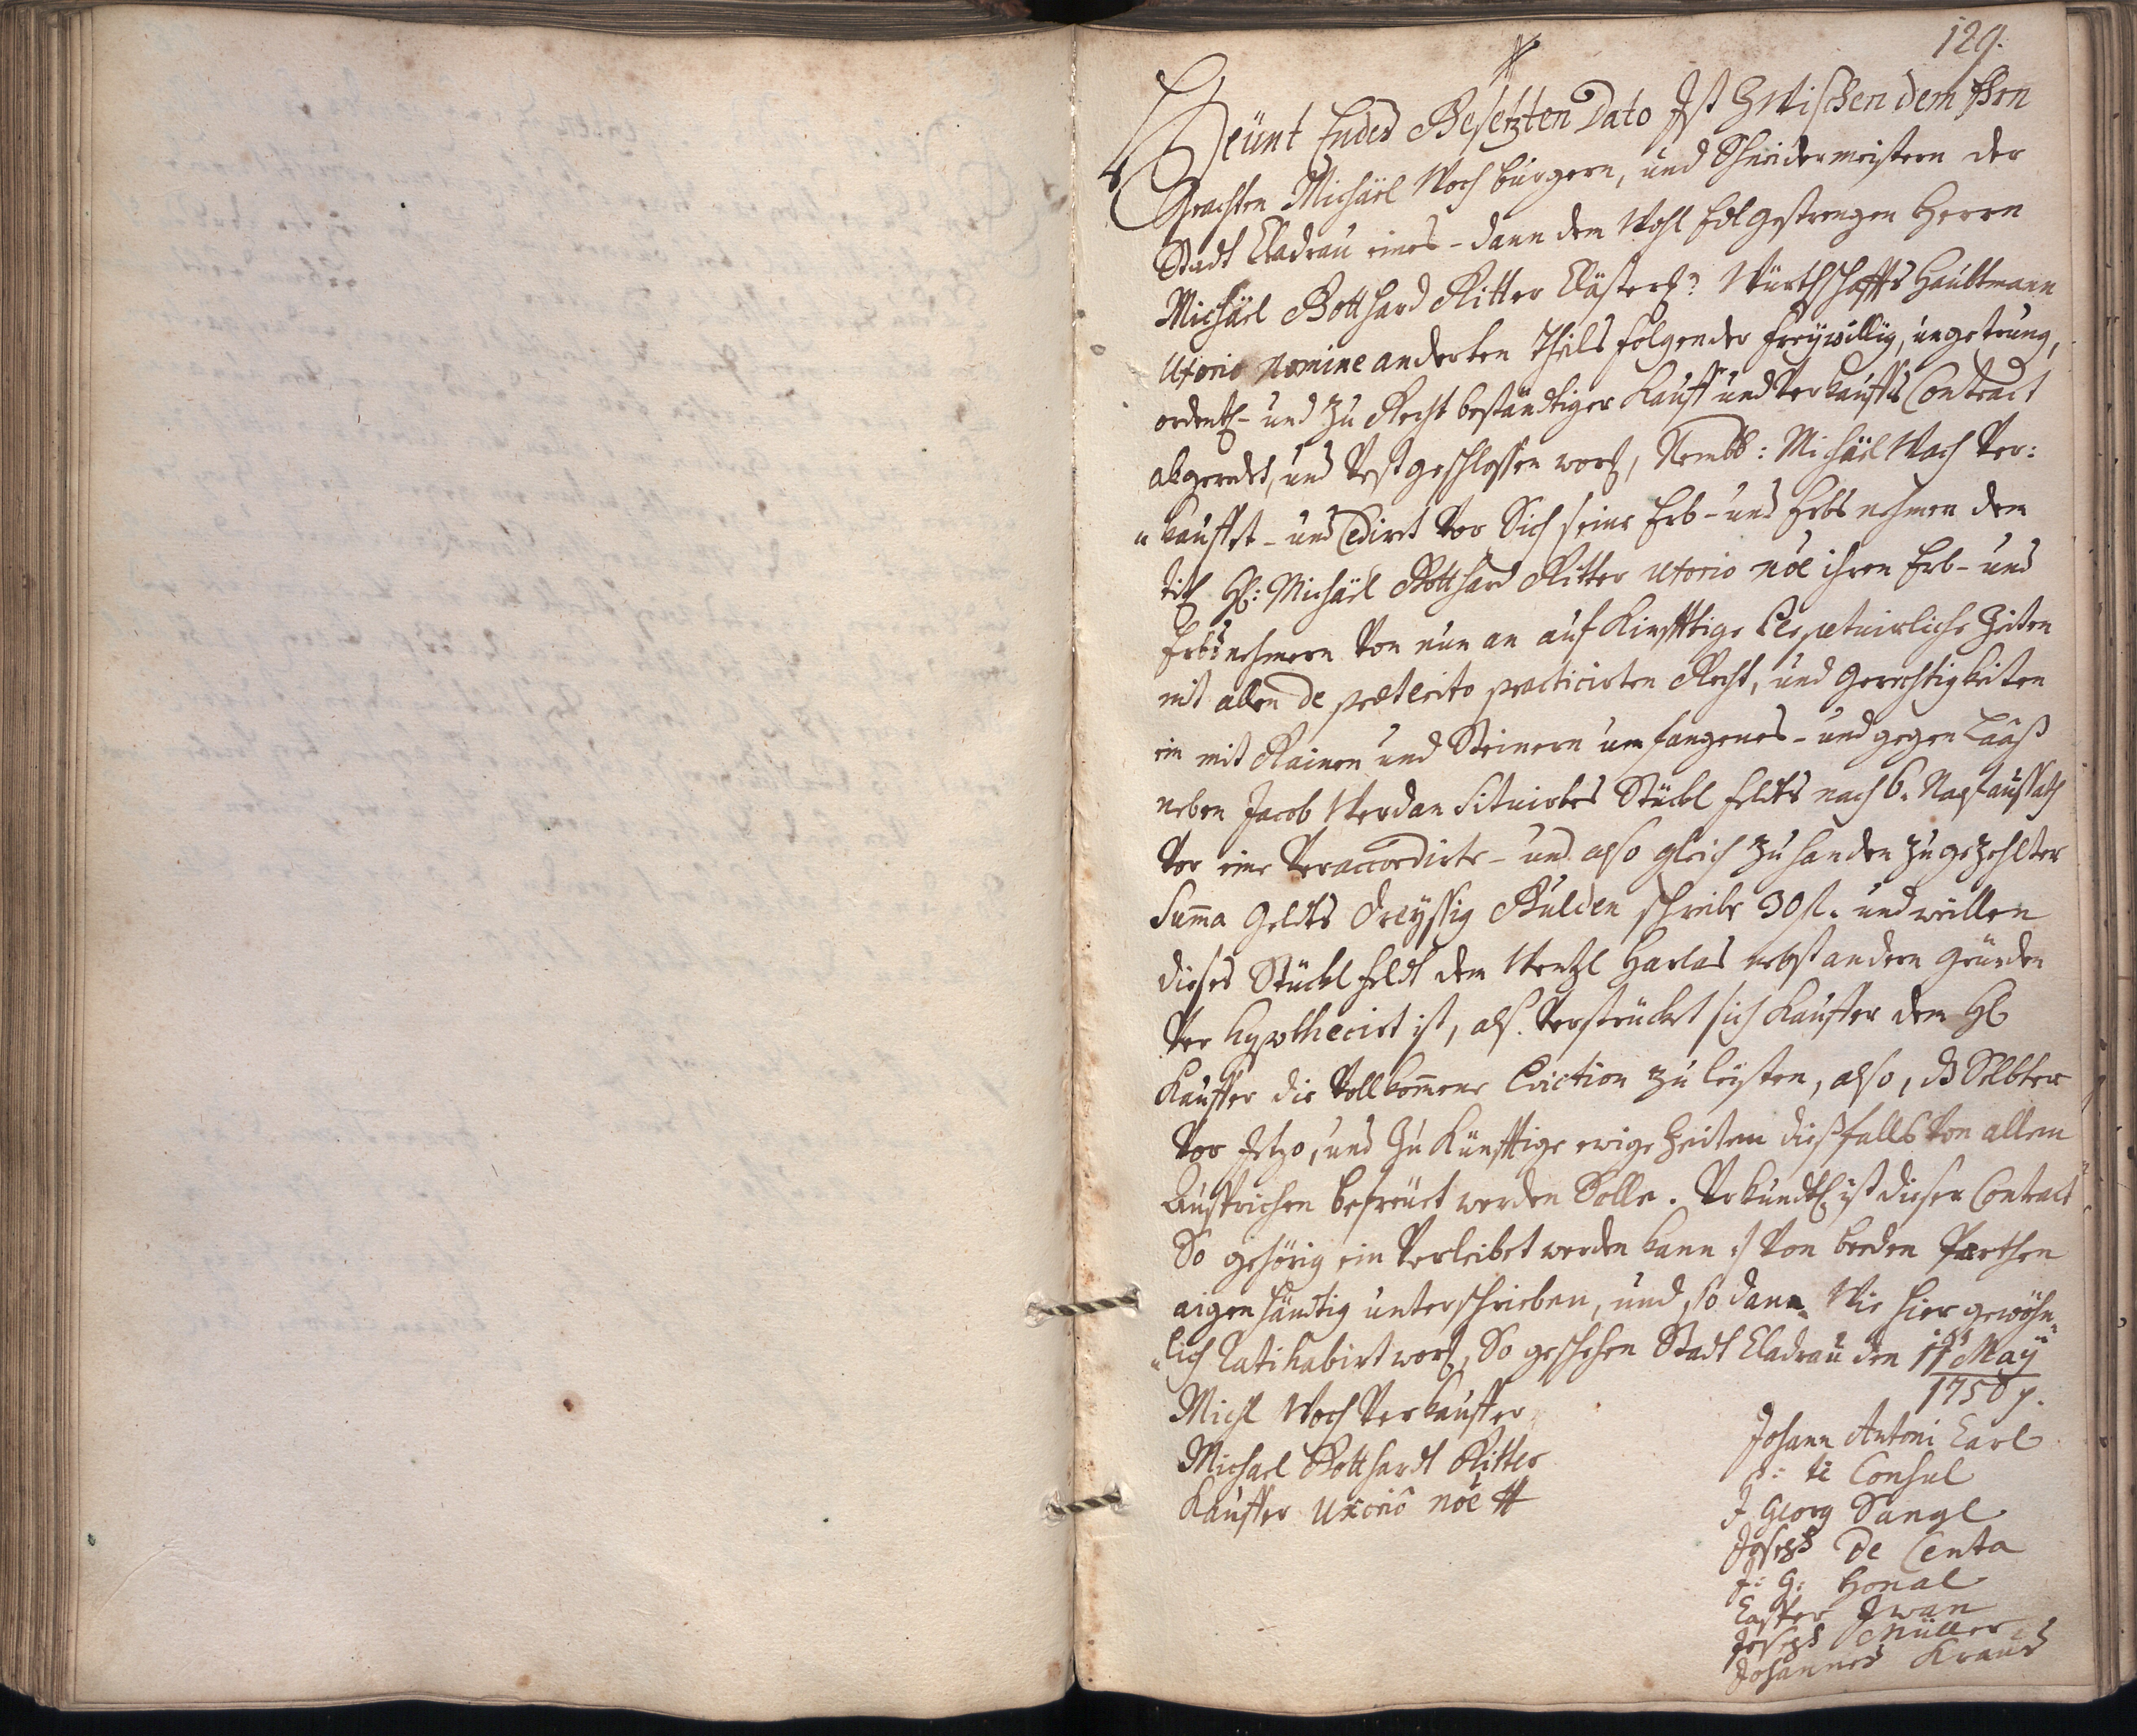 129.
Heünt Endes Gesetzten Dato Ist Zwischen dem Ehrn
Geachten Michäel Woch burgern, und Schneidermeistern der
Stadt Cladrau eines - dann dem Wohl Edl gestrengen Herrn
Michäel Gotthard Ritter Clösterl: Würthschaffts Haubtmann
Uxorio Nomine anderten Theils folgender freywillig, ungetrung,
ordentl- und zu Recht beständtiger Kauff und Verkauffs Contract
abgeredet, und Vest geschlossen word, Nembl: Michäel Woch Ver:
"kauffet - und Cedirt Vor Sich seine Erb- und Erbs nehmen dem
titl H: Michäel Gotthard Ritter Uxorio nôe ihren Erb- und
Erbsnehmern Von nun an auf Kinfftige Perpetuirliche Zeiten
mit allen de præterito practicirten Recht, und Gerechtigkeiten
ein mit Rainen und Steinern umfangenes - und gegen
neben Jacob Werdan Situirtes Stückl Feldts nach 6. Napf aussath
Vor eine Veraccordirte - und also gleich zu handen zugezehlter
Summa Geldts Dreyssig Gulden schreibe 30 fl. und weillen
dieses Stückl Feldt dem Wentzl Harlas nebst andern Gründen
Ver hypothecirt ist, als Verstrücket sich Kauffer dem H
Kauffer die Vollkommene Eviction zu leysten, also, dß Selbter
Vor Jetzo, und Zu Künfftige ewige Zeiten dießfalls Von allen
Ansprichen befreüet werden Solle. Uhrkundtl ist dieser Contract
So gehörig ein Verleibet werden kann :/ Von beeden Parthen
aigenhändtig unterschrieben, und so dann Wie hier gewöhn"
"lich Ratihabirt word, So geschehen Stadt Cladrau den 11ts May
1750
Michl Woch Verkauffer
Michael Gotthardt Ritter
Kauffer Uxoriô nôe
Johann Antoni Carl
p: t: Consul
J. Georg Sangl
Joseph De Centa
J: G: Honal
Casper Iwan
Joseph Müller
Johannes Kraus